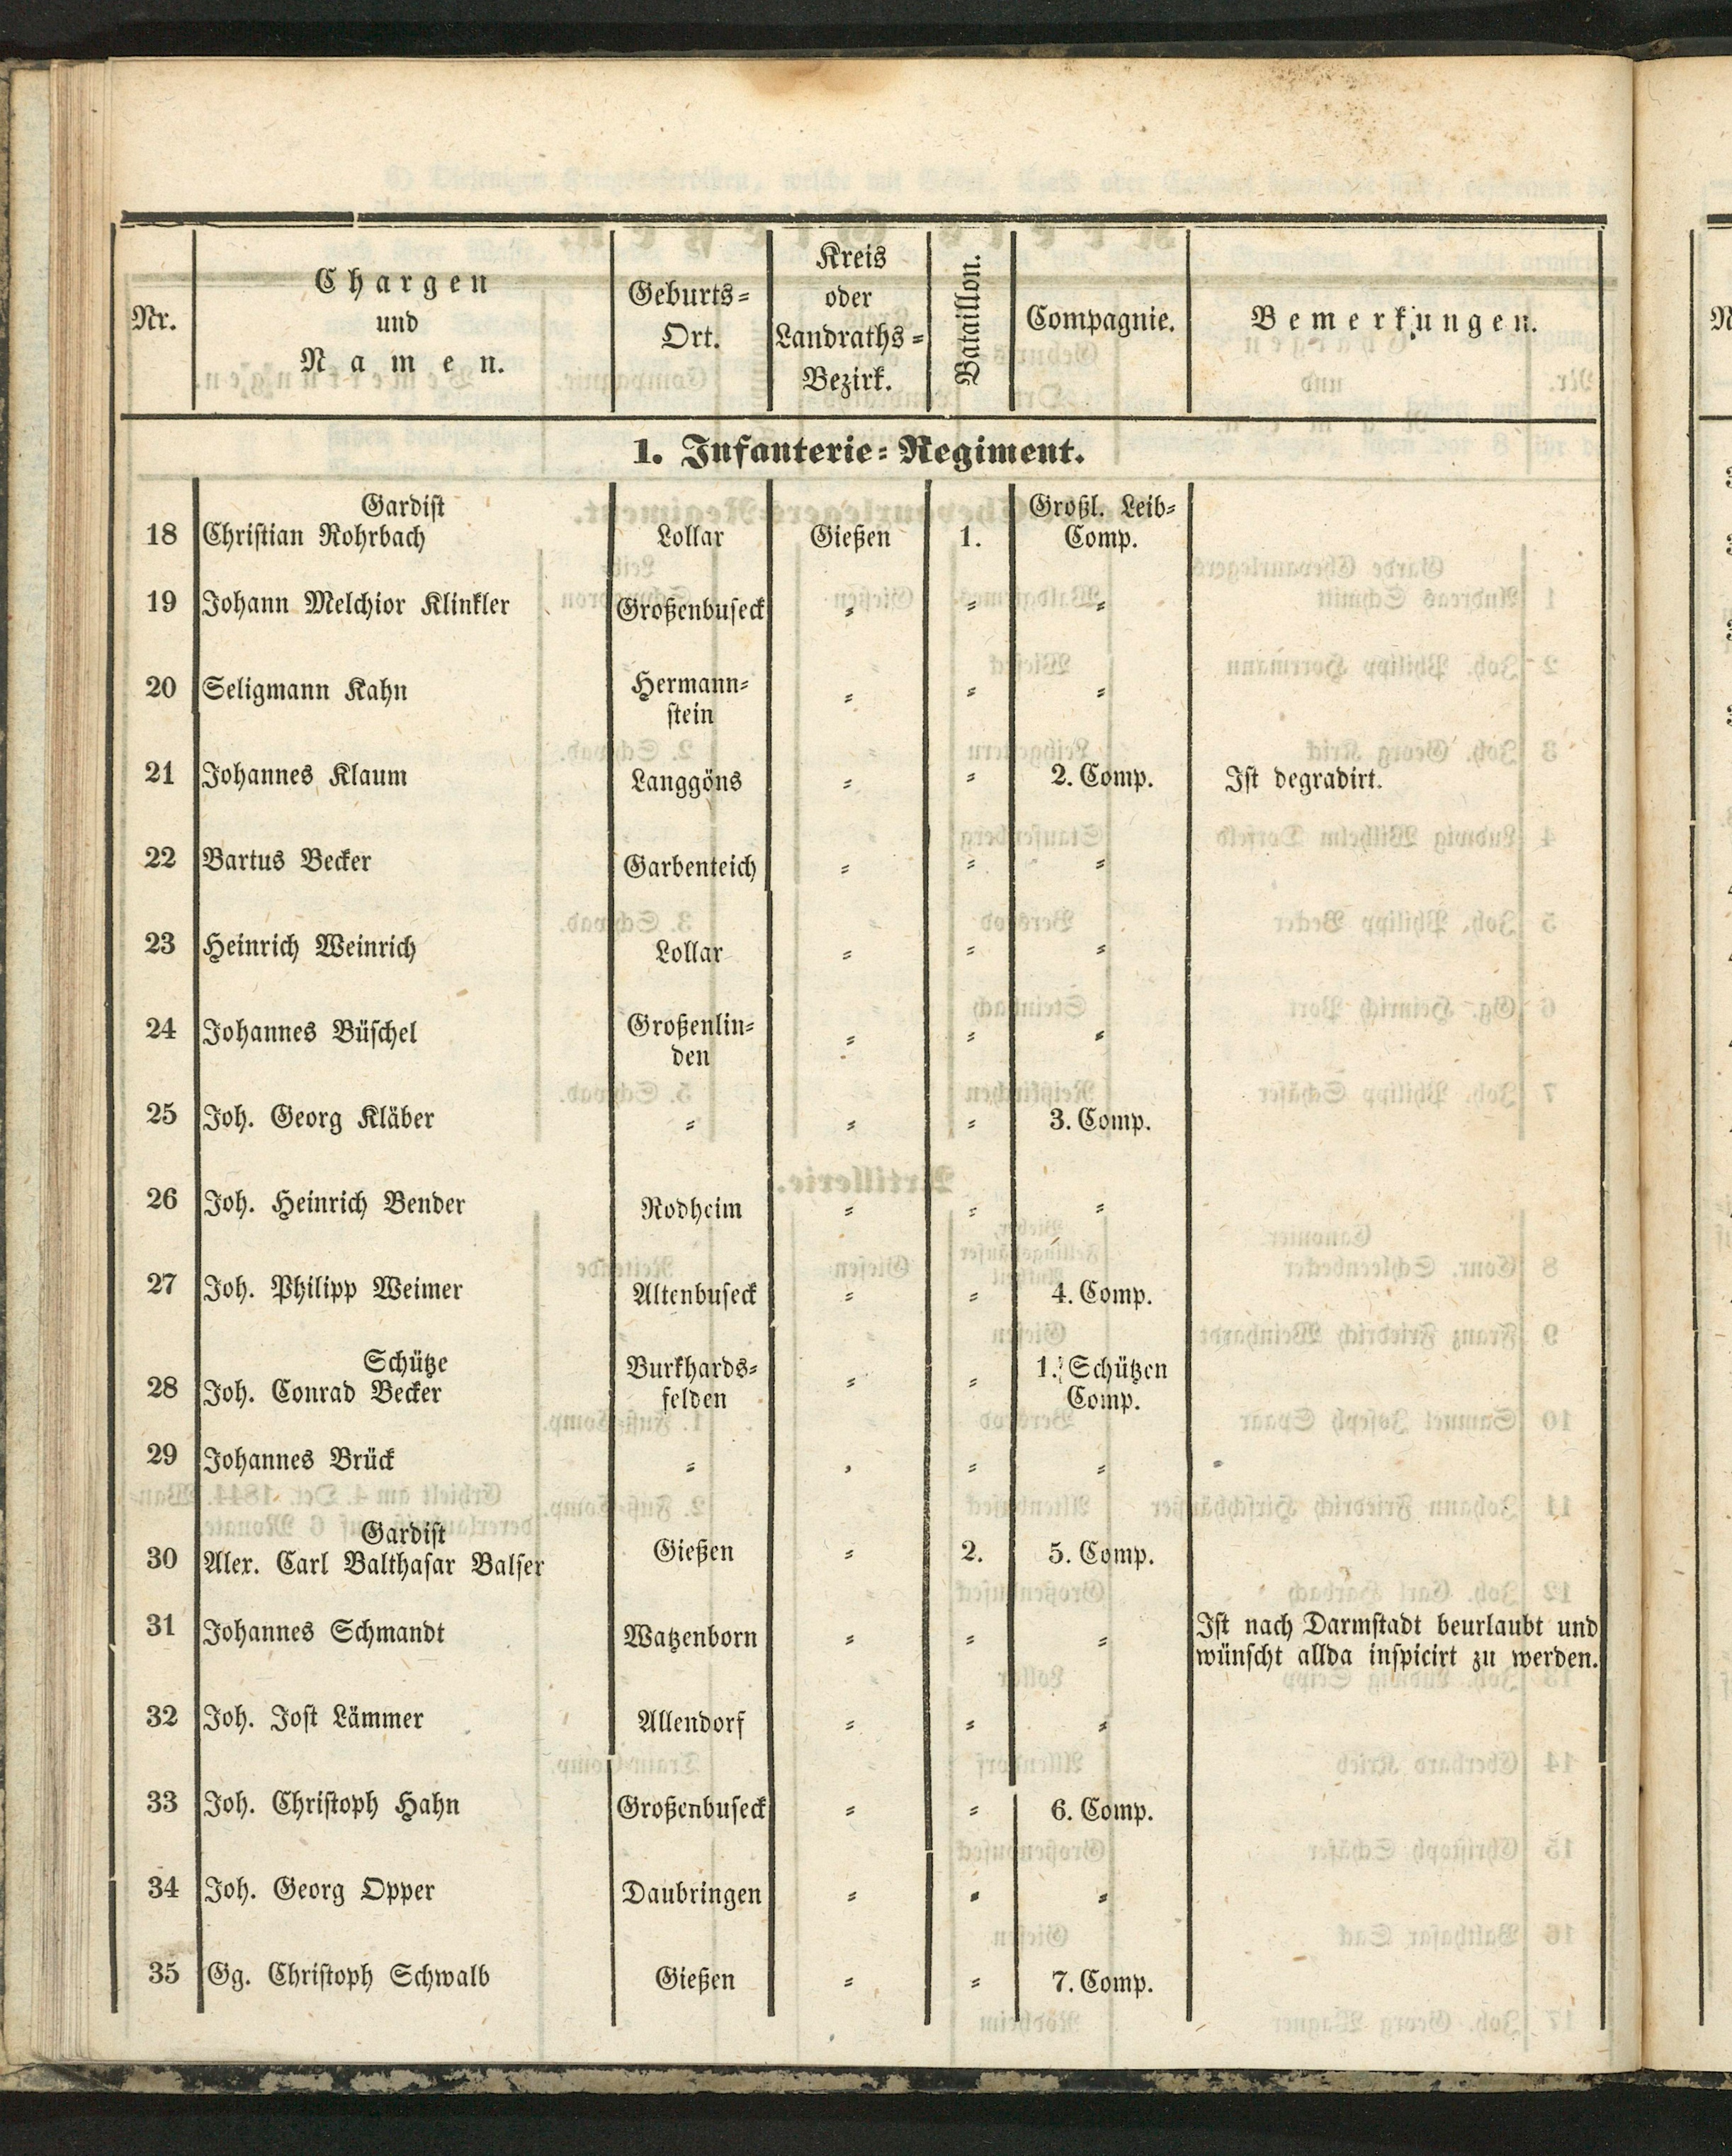 Nr.
Chargen
und
Namen.
Geburts=
Ort.
Kreis
oder
Landraths=
Bezirk.
Bataillon.
Compagnie.
Bemerkungen.
1. Infanterie=Regiment.
Gardist
18 Christian Rohrbach Lollar Gießen 1. Großl. Leib=
Comp.
19 Johann Melchior Klinkler Großenbuseck = = =
20 Seligmann Kahn Hermann=
stein = = =
21 Johannes Klaum Langgöns = = 2. Comp. Ist degradirt.
22 Bartus Becker Garbenteich = = =
23 Heinrich Weinrich Lollar = = =
24 Johannes Büschel Großenlin=
den = = =
25 Joh. Georg Kläber = = = 3. Comp.
26 Joh. Heinrich Bender Rodheim = = =
27 Joh. Philipp Weimer Altenbuseck = = 4. Comp.
Schütze
28 Joh. Conrad Becker Burkhards=
felden = = 1. Schützen
Comp.
29 Johannes Brück = = = =
Gardist
30 Alex. Carl Balthasar Balser Gießen = 2. 5. Comp.
31 Johannes Schmandt Watzenborn = = = Ist nach Darmstadt beurlaubt und
wünscht allda inspicirt zu werden.
32 Joh. Jost Lämmer Allendorf = = =
33 Joh. Christoph Hahn Großenbuseck = = 6. Comp.
34 Joh. Georg Opper Daubringen = = =
35 Gg. Christoph Schwalb Gießen = = 7. Comp.